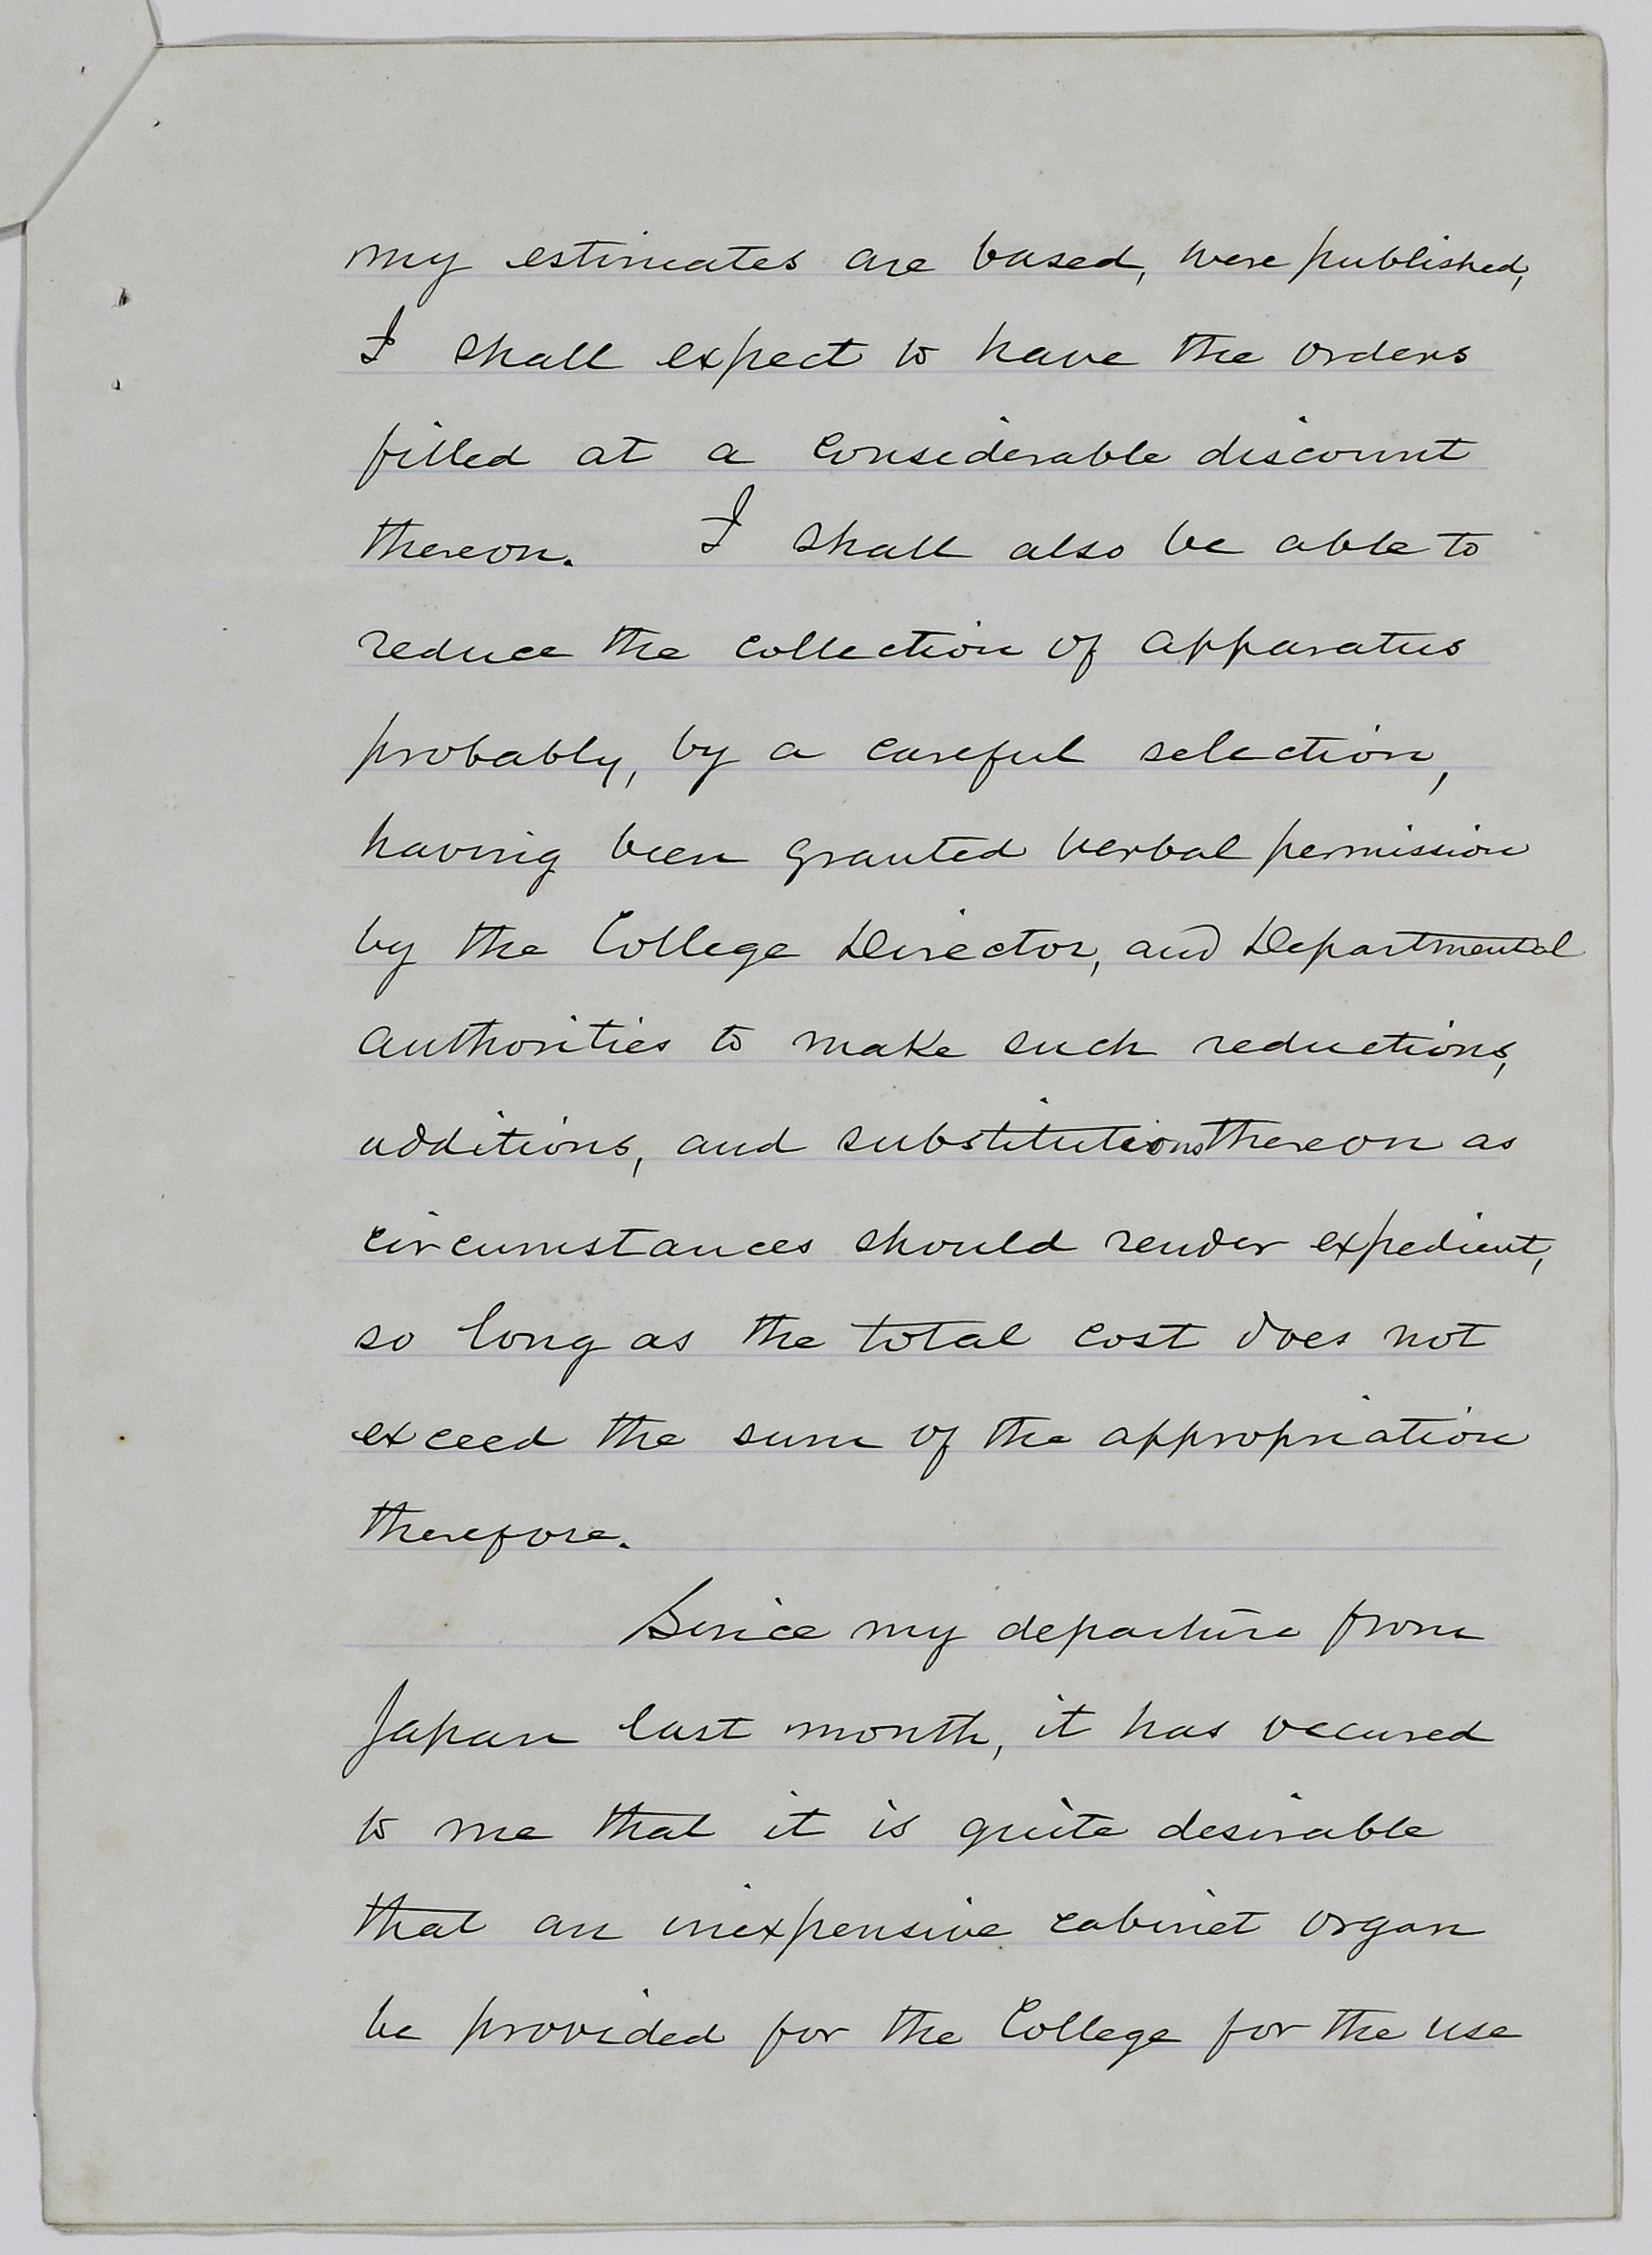 my estimates are based, were published,
I shall expect to have the orders
filled at a considerable discount
thereon. I shall also be able to
reduce the collection of apparatus
probably, by a careful selection,
having been granted verbal permission
by the College Director, and Departmental
authorities to make such reductions,
additions, and substitutions thereon as
circumstances should render expedient,
so long as the total cost does not
exceed the sum of the appropriation
therefore.
Since my departure from
Japan last month, it has occured
to me that it is quite desirable
that an inexpensive cabinet organ
be provided for the College for the use